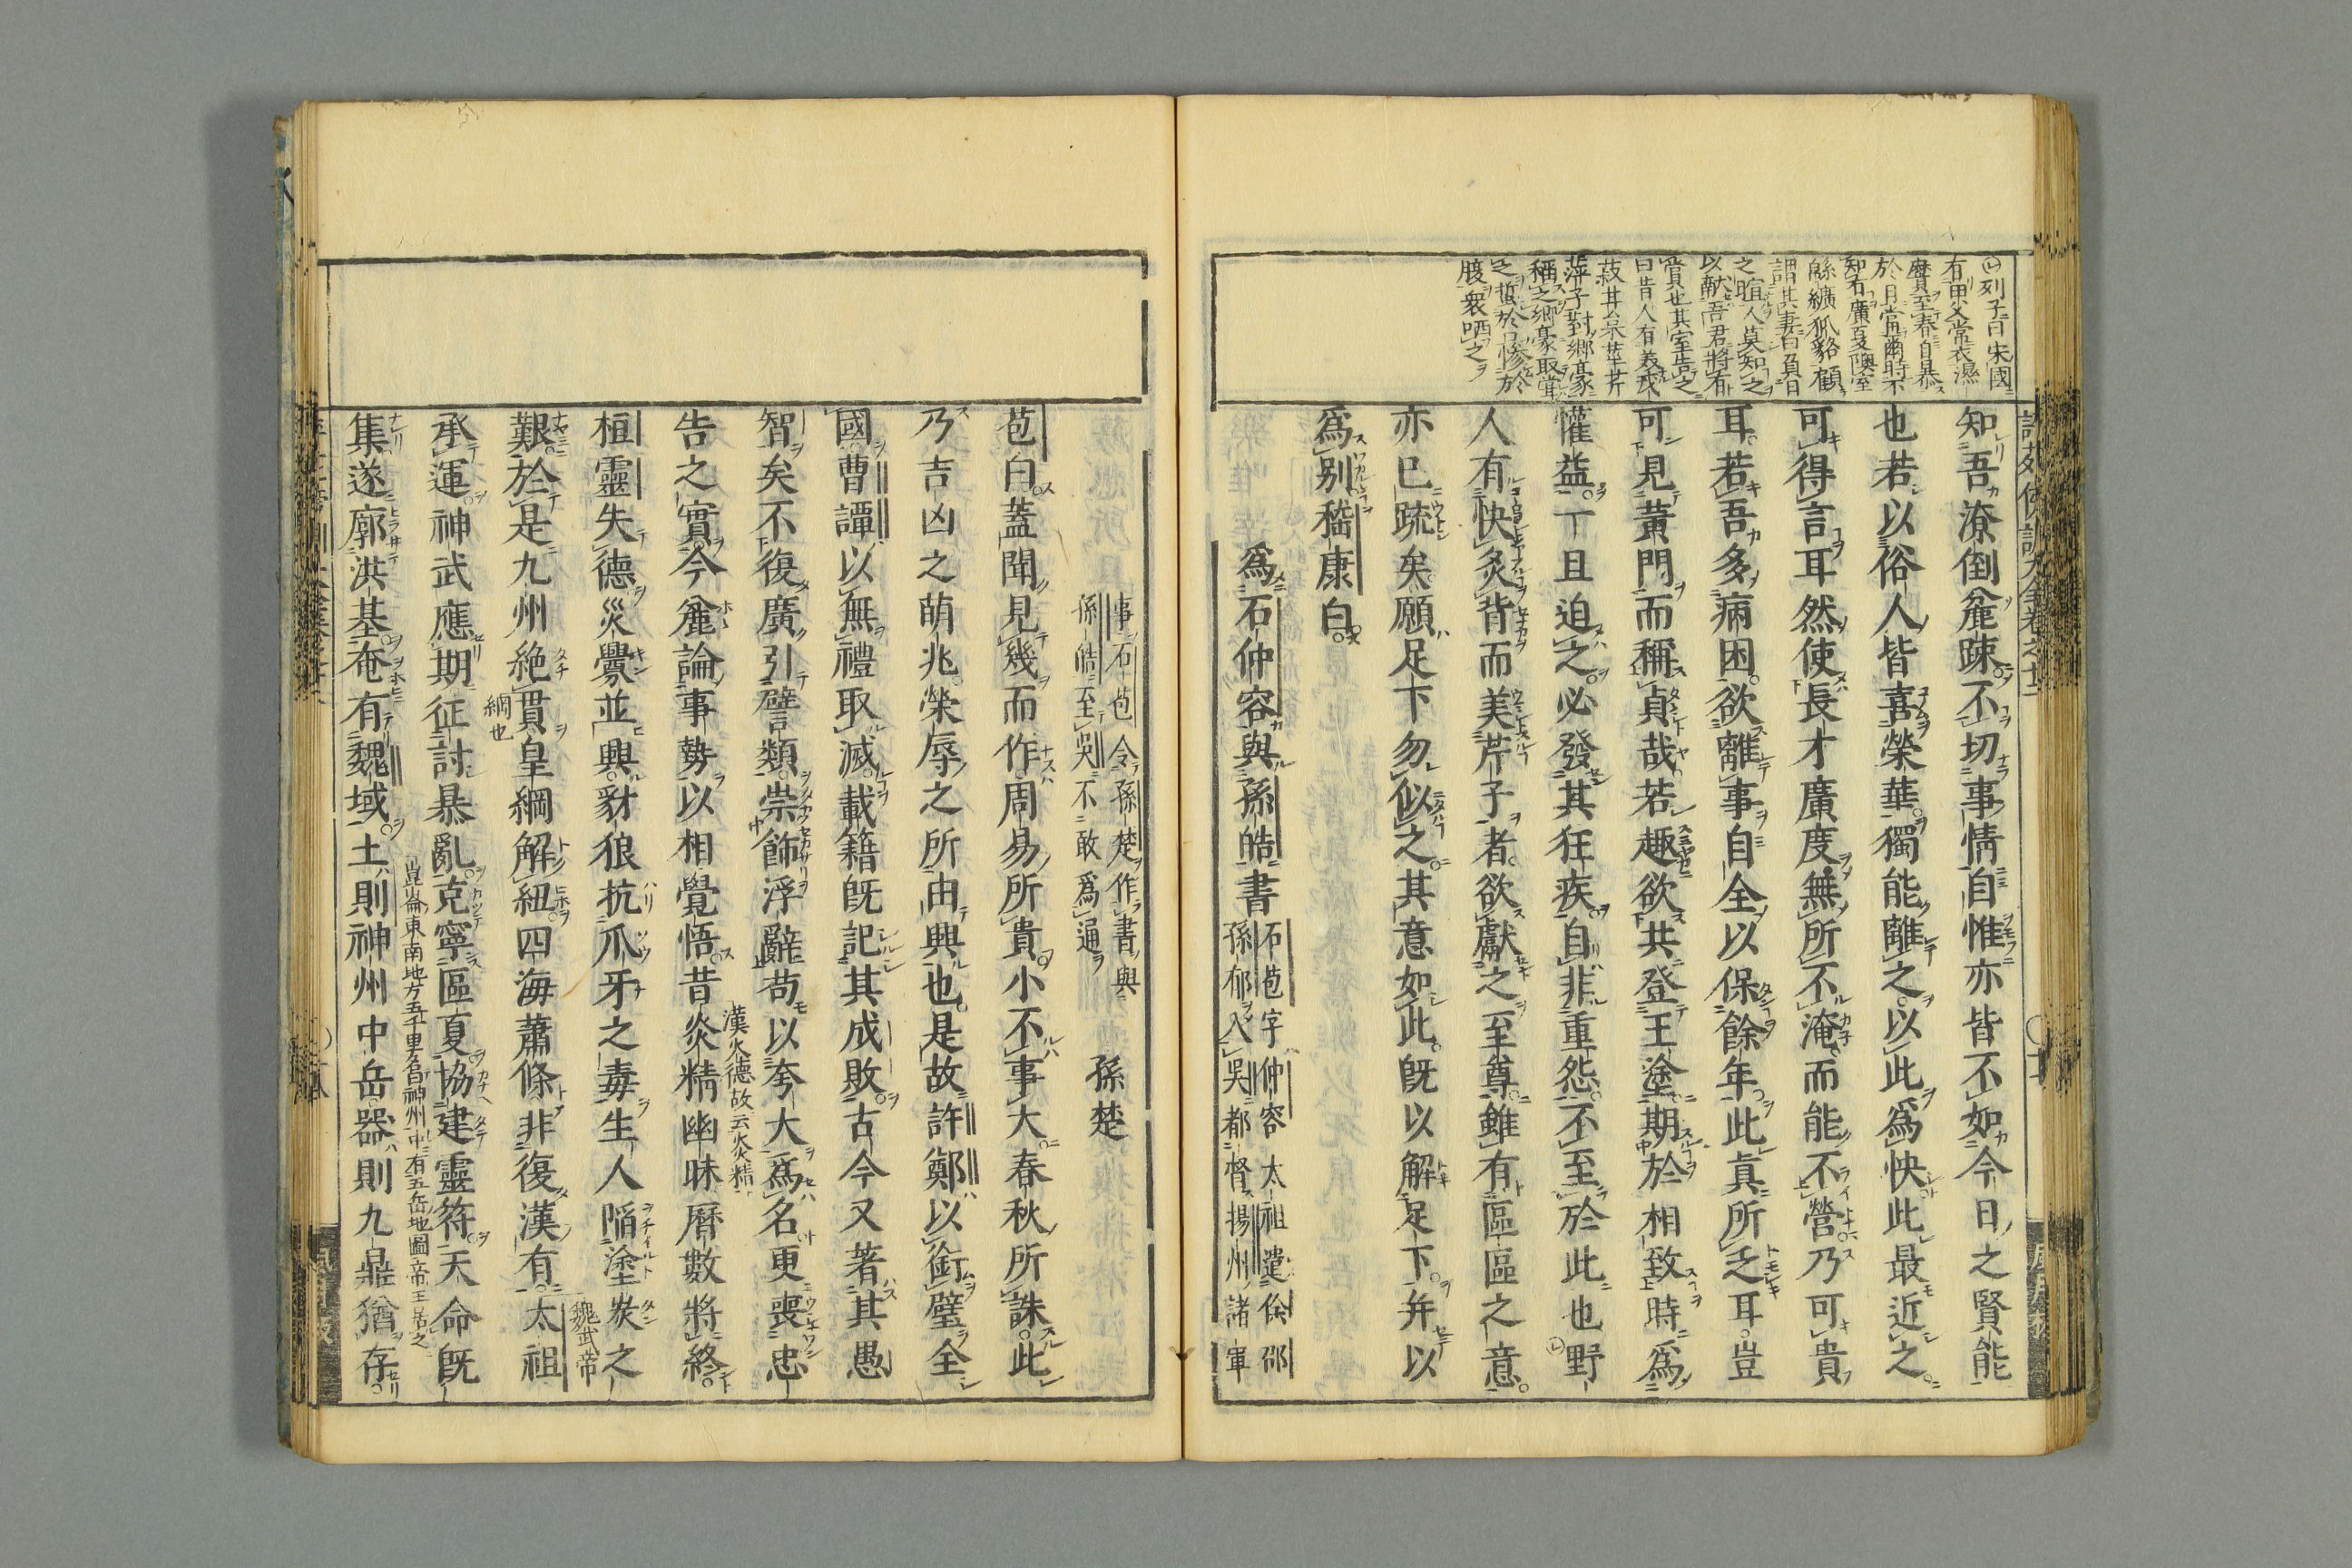 列子曰宋國
有田父常衣濕
黂至春自暴
於日當爾時不
知有廣夏隩室
緜纊狐貉顧
謂其妻曰負日
之暄人莫知之
以献吾君將有
賞也其室告之
曰昔人有美戎
菽甘枲莖芹
萍子對鄉豪
稱之鄉豪取嘗
之蜇於口慘於
腹衆哂之
知吾潦倒麄疎不切事情自惟亦皆不如今日之賢能
也若以俗人皆喜榮華獨能離之以此爲快此最近之
可得言耳然使長才廣度無所不淹而能不營乃可貴
耳若吾多病困欲離事自全以保餘年此眞所乏耳豈
可見黃門而稱貞哉若趣欲共登王塗期於相致時爲
懽益一旦迫之必發其狂疾自非重怨不至於此也野
人有快炙背而美芹子者欲獻之至尊雖有區區之意
亦已疏矣願足下勿似之其意如此既以解足下并以
爲别嵇康白
爲石仲容與孫皓書
石苞字仲容太祖遣徐邵
孫郁入吳都督揚州諸軍
事石苞令孫楚作書與
孫皓至吳不敢爲通
孫楚
苞白蓋聞見幾而作周易所貴小不事大春秋所誅此
乃吉凶之萌兆榮辱之所由興也是故許鄭以銜璧全
國曹譚以無禮取滅載籍既記其成敗古今又著其愚
智矣不復廣引譬類崇飾浮辭苟以夸大爲名更喪忠
告之實今麄論事勢以相覺悟昔炎精幽昧曆數將終
漢火德故云炎精
桓靈失德災釁並興豺狼抗爪牙之毒生人陷塗炭之
艱於是九州絶貫皇綱解紐四海蕭條非復漢有太祖
綱也
魏武帝
承運神武應期征討暴亂克寧區夏協建靈符天命既
集遂廓洪基奄有魏域土則神州中岳器則九鼎猶存
崑崙東南地方五千里名神州中有五岳地圖帝王居之